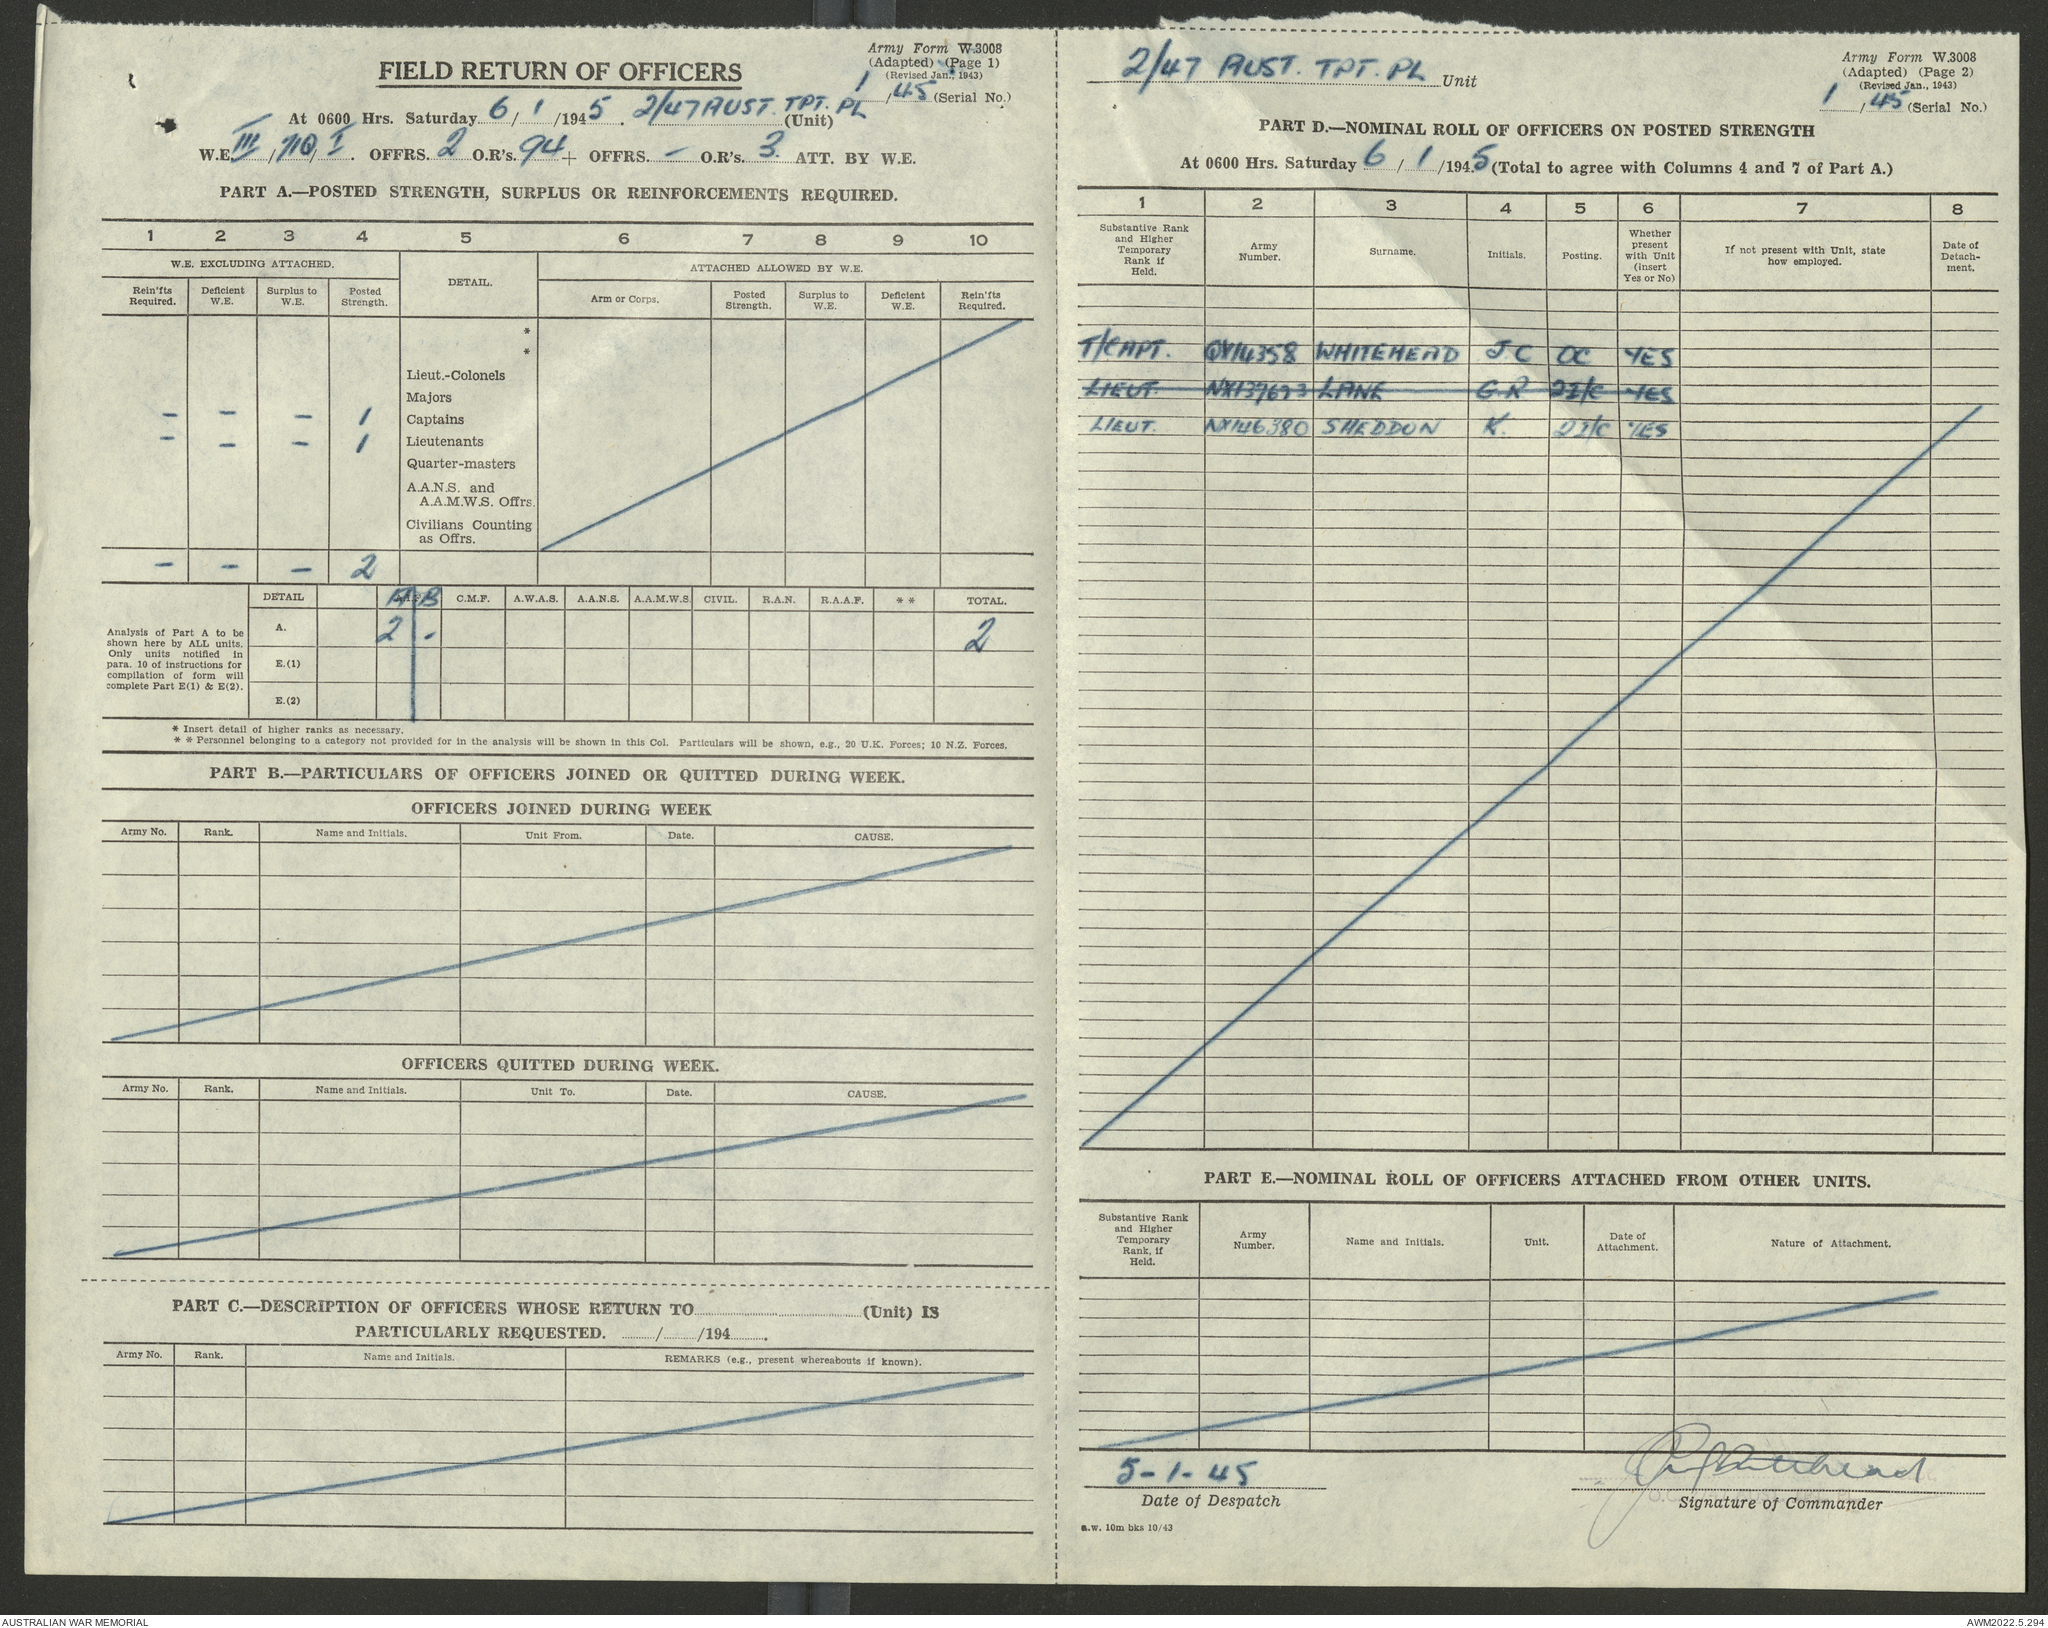 Army Form W.3008
(Adapted) (Page 1)
(Revised Jan., 1943)
1/45 (Serial No.)
FIELD RETURN OF OFFICERS
At 0600 Hrs. Saturday 6/1/1945. 2/47 AUST. TPT. PL (Unit)
W.E. III/710/I. OFFRS. 2 O.R's. 94 + OFFRS. - O.R's. 3. ATT. BY W.E.
PART A.—POSTED STRENGTH, SURPLUS OR REINFORCEMENTS REQUIRED.
1 2 3 4 5 6 7 8 9 10
W.E. EXCLUDING ATTACHED. DETAIL. ATTACHED ALLOWED BY W.E.
Rein'fts Required. Deficient W.E. Surplus to W.E. Posted Strength. Arm or Corps. Posted Strength. Surplus to W.E. Deficient W.E. Rein'fts Required.
*
*
Lieut.-Colonels
Majors
- - - 1 Captains
- - - 1 Lieutenants
Quarter-masters
A.A.N.S. and
A.A.M.W.S. Offrs.
Civilians Counting
as Offrs.
- - - 2
DETAIL A.I.F. A B C.M.F. A.W.A.S. A.A.N.S. A.A.M.W.S. CIVIL. R.A.N. R.A.A.F. * * TOTAL.
Analysis of Part A to be
shown here by ALL units.
Only units notified in
para. 10 of instructions for
compilation of form will
complete Part E(1) & E(2).
A. 2 - 2
E.(1)
E.(2)
* Insert detail of higher ranks as necessary.
* * Personnel belonging to a category not provided for in the analysis will be shown in this Col. Particulars will be shown, e.g., 20 U.K. Forces; 10 N.Z. Forces.
PART B.—PARTICULARS OF OFFICERS JOINED OR QUITTED DURING WEEK.
OFFICERS JOINED DURING WEEK
Army No. Rank. Name and Initials. Unit From. Date. CAUSE.
OFFICERS QUITTED DURING WEEK.
Army No. Rank. Name and Initials. Unit To. Date. CAUSE.
PART C.—DESCRIPTION OF OFFICERS WHOSE RETURN TO (Unit) IS
PARTICULARLY REQUESTED. / /194 .
Army No. Rank. Name and Initials. REMARKS (e.g., present whereabouts if known).
2/47 AUST. TPT. PL Unit
Army Form W.3008
(Adapted) (Page 2)
(Revised Jan., 1943)
1/45 (Serial No.)
PART D.—NOMINAL ROLL OF OFFICERS ON POSTED STRENGTH
At 0600 Hrs. Saturday 6/1/1945 (Total to agree with Columns 4 and 7 of Part A.)
1 2 3 4 5 6 7 8
Substantive Rank and Higher Temporary Rank if Held. Army Number. Surname. Initials. Posting. Whether present with Unit (insert Yes or No) If not present with Unit, state how employed. Date of Detach-ment.
T/CAPT. QX14358 WHITEHEAD J C OC YES
LIEUT. NX137673 LANE G.R 2I/C YES
LIEUT. NX146380 SHEDDON K. 2I/C YES
PART E.—NOMINAL ROLL OF OFFICERS ATTACHED FROM OTHER UNITS.
Substantive Rank and Higher Temporary Rank, if Held. Army Number. Name and Initials. Unit. Date of Attachment. Nature of Attachment.
5-1-45
Date of Despatch
Signature of Commander
a.w. 10m bks 10/43
AUSTRALIAN WAR MEMORIAL
AWM2022.5.294